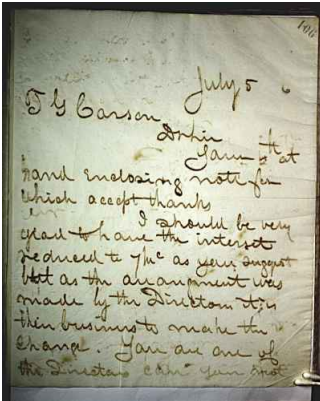 106
July 5 6
T G Carson
Yours at
hand enclosing note for
which accept thanks
I should be very
glad to have the interest
reduced to as you suggest
but as the arrangment was
made by the Directors it is
their business to make the
change. You are one of
the Directors can you not